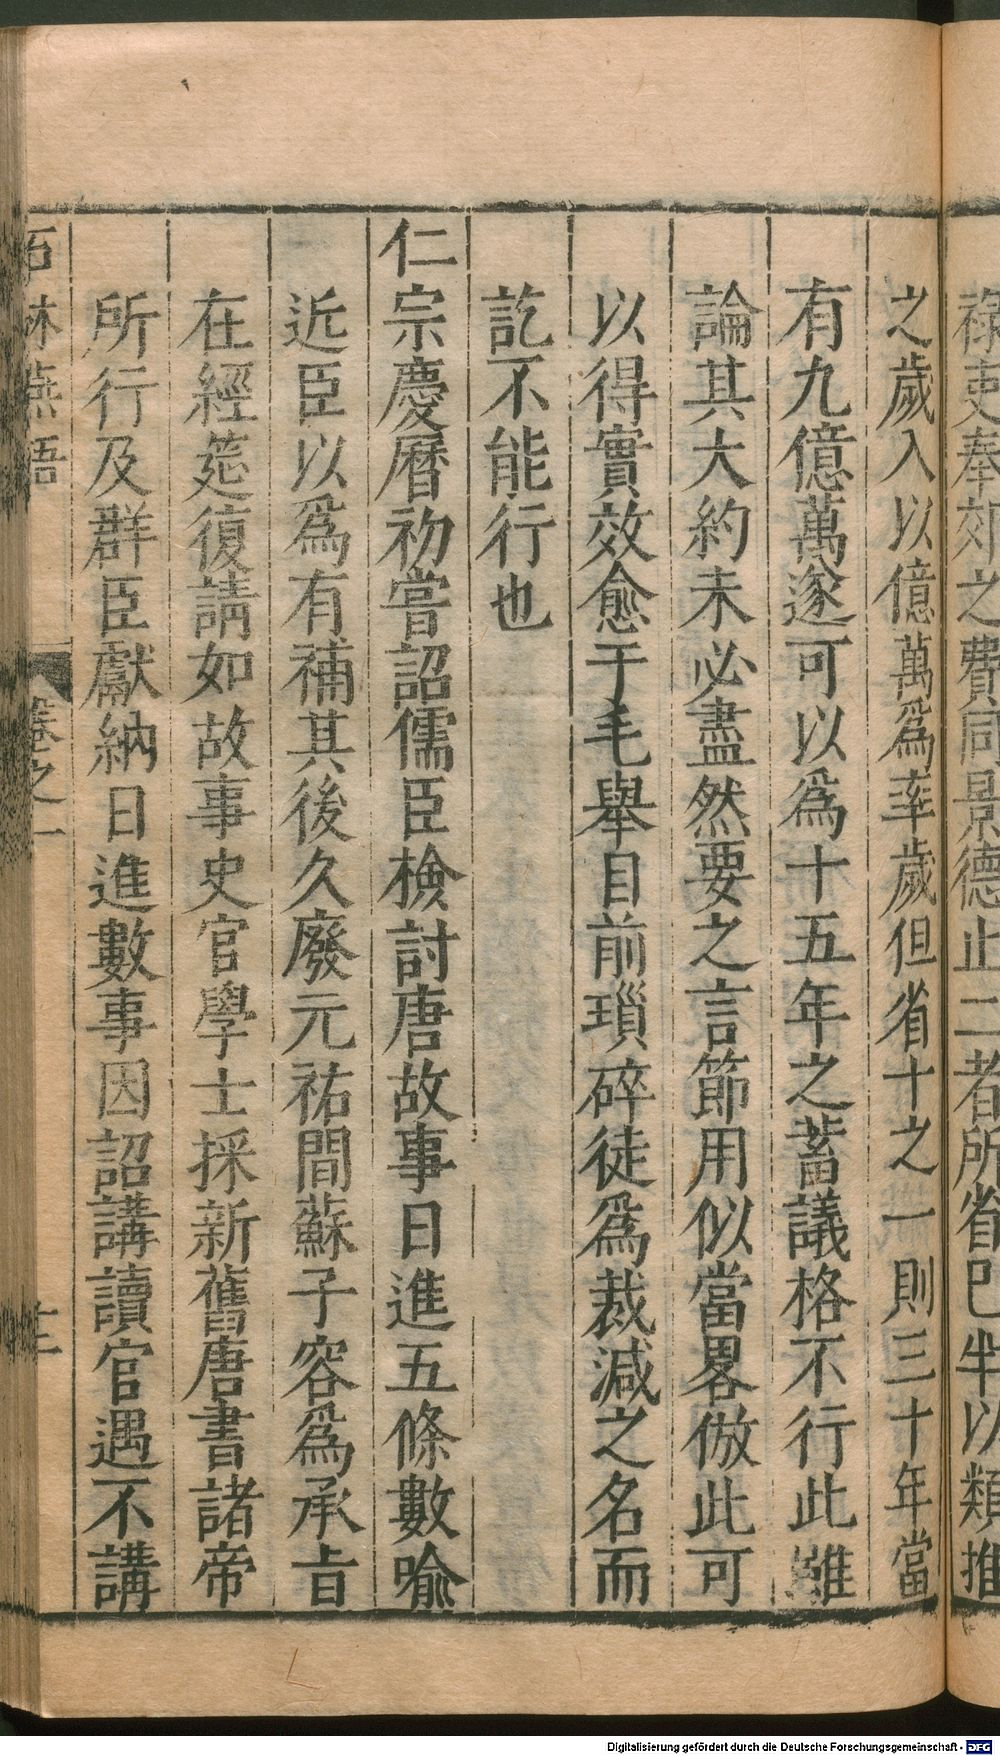 祿吏奉郊之費同景德止二者所省已半以類推
之歲入以億萬爲率歲但省十之一則三十年當
有九億萬遂可以爲十五年之蓄議格不行此雖
論其大約未必盡然要之言節用似當畧倣此可
以得實效愈于毛舉目前瑣碎徒爲裁減之名而
訖不能行也
仁宗慶曆初嘗詔儒臣檢討唐故事日進五條數喻
近臣以爲有補其後久廢元祐間蘇子容爲承旨
在經筵復請如故事史官學士採新舊唐書諸帝
所行及群臣獻納日進數事因詔講讀官遇不講
石林燕語 卷之一 十二
Digitalisierung gefördert durch die Deutsche Forschungsgemeinschaft - DFG